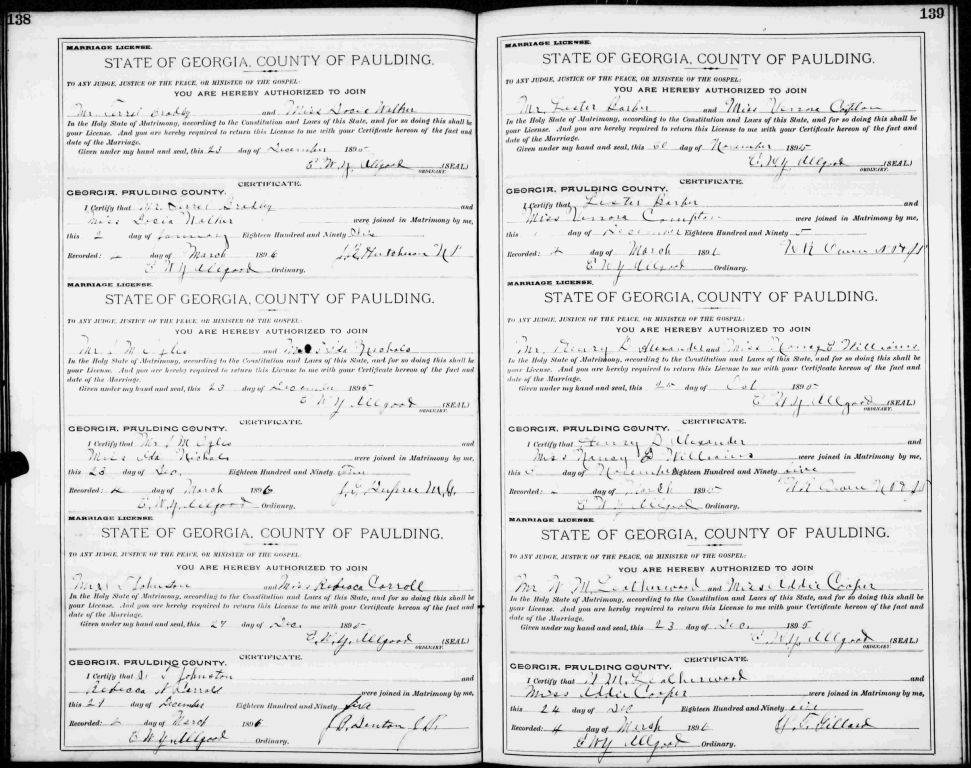 138
MARRIAGE LICENSE.
STATE OF GEORGIA, COUNTY OF PAULDING.
TO ANY JUDGE, JUSTICE OF THE PEACE, OR MINISTER OF THE GOSPEL:
YOU ARE HEREBY AUTHORIZED TO JOIN
Mr. and Miss Docia Walker
In the Holy State of Matrimony, according to the Constitution and Laws of this State, and for so doing this shall be
your License. And you are hereby required to return this License to me with your Certificate hereon of the fact and
date of the Marriage.
Given under my hand and seal, this 23 day of December 1895
E. W. Y. Allgood (SEAL)
ORDINARY.
CERTIFICATE.
GEORGIA, PAULDING COUNTY.
I Certify that Mr. and
Miss Docia Walker were joined in Matrimony by me,
this 2 day of January Eighteen Hundred and Ninety
Recorded: day of March 1896 Hutcheson
E W Y Allgood Ordinary.
MARRIAGE LICENSE.
STATE OF GEORGIA, COUNTY OF PAULDING.
TO ANY JUDGE, JUSTICE OF THE PEACE, OR MINISTER OF THE GOSPEL:
YOU ARE HEREBY AUTHORIZED TO JOIN
Mr. J M and Nichols
In the Holy State of Matrimony, according to the Constitution and Laws of this State, and for so doing this shall be
your License. And you are hereby required to return this License to me with your Certificate hereon of the fact and
date of the Marriage.
Given under my hand and seal, this 23 day of December 1895
E W Y Allgood (SEAL)
ORDINARY.
CERTIFICATE.
GEORGIA, PAULDING COUNTY.
I Certify that Mr J M and
Miss Ada Nichols were joined in Matrimony by me,
this 25 day of Dec. Eighteen Hundred and Ninety
Recorded: day of March 1896 M. G.
E. W. Y. Allgood Ordinary.
MARRIAGE LICENSE.
STATE OF GEORGIA, COUNTY OF PAULDING.
TO ANY JUDGE, JUSTICE OF THE PEACE, OR MINISTER OF THE GOSPEL:
YOU ARE HEREBY AUTHORIZED TO JOIN
Johnston and Miss Rebecca Carroll
In the Holy State of Matrimony, according to the Constitution and Laws of this State, and for so doing this shall be
your License. And you are hereby required to return this License to me with your Certificate hereon of the fact and
date of the Marriage.
Given under my hand and seal, this 27 day of Dec. 1895
E. W. Y. Allgood (SEAL)
ORDINARY.
CERTIFICATE.
GEORGIA, PAULDING COUNTY.
I Certify that T Johnston and
Rebecca Carroll were joined in Matrimony by me,
this day of December Eighteen Hundred and Ninety five
Recorded: day of March 1896 Denton
E. W. Y. Allgood Ordinary.
139
MARRIAGE LICENSE.
STATE OF GEORGIA, COUNTY OF PAULDING.
TO ANY JUDGE, JUSTICE OF THE PEACE, OR MINISTER OF THE GOSPEL:
YOU ARE HEREBY AUTHORIZED TO JOIN
Mr. Lester Harper and Miss
In the Holy State of Matrimony, according to the Constitution and Laws of this State, and for so doing this shall be
your License. And you are hereby required to return this License to me with your Certificate hereon of the fact and
date of the Marriage.
Given under my hand and seal, this day of November 1895
E. W. Y. Allgood (SEAL)
ORDINARY.
CERTIFICATE.
GEORGIA, PAULDING COUNTY.
I Certify that Lester Harper and
Miss Compton were joined in Matrimony by me,
this day of December Eighteen Hundred and Ninety 5
Recorded: 4 day of March 1896
E W Y Allgood Ordinary.
MARRIAGE LICENSE.
STATE OF GEORGIA, COUNTY OF PAULDING.
TO ANY JUDGE, JUSTICE OF THE PEACE, OR MINISTER OF THE GOSPEL:
YOU ARE HEREBY AUTHORIZED TO JOIN
Mr. Henry D. Alexander and Miss Nancy Williams
In the Holy State of Matrimony, according to the Constitution and Laws of this State, and for so doing this shall be
your License. And you are hereby required to return this License to me with your Certificate hereon of the fact and
date of the Marriage.
Given under my hand and seal, this day of Oct 1895
E W Y Allgood (SEAL)
ORDINARY.
CERTIFICATE.
GEORGIA, PAULDING COUNTY.
I Certify that Henry D. Alexander and
Miss Nancy Williams were joined in Matrimony by me,
this day of November Eighteen Hundred and Ninety five
Recorded: day of March 189
E. W. Y. Allgood Ordinary.
MARRIAGE LICENSE.
STATE OF GEORGIA, COUNTY OF PAULDING.
TO ANY JUDGE, JUSTICE OF THE PEACE, OR MINISTER OF THE GOSPEL:
YOU ARE HEREBY AUTHORIZED TO JOIN
Mr W. M. Leatherwood and Miss Addie Cooper
In the Holy State of Matrimony, according to the Constitution and Laws of this State, and for so doing this shall be
your License. And you are hereby required to return this License to me with your Certificate hereon of the fact and
date of the Marriage.
Given under my hand and seal, this 23 day of Dec. 1895
E. W. Y. Allgood (SEAL)
ORDINARY.
CERTIFICATE.
GEORGIA, PAULDING COUNTY.
I Certify that W. M. Leatherwood and
Miss Addie Cooper were joined in Matrimony by me,
this 24 day of Dec Eighteen Hundred and Ninety five
Recorded: 4 day of March 1896 Gillard
E W Y Allgood Ordinary.